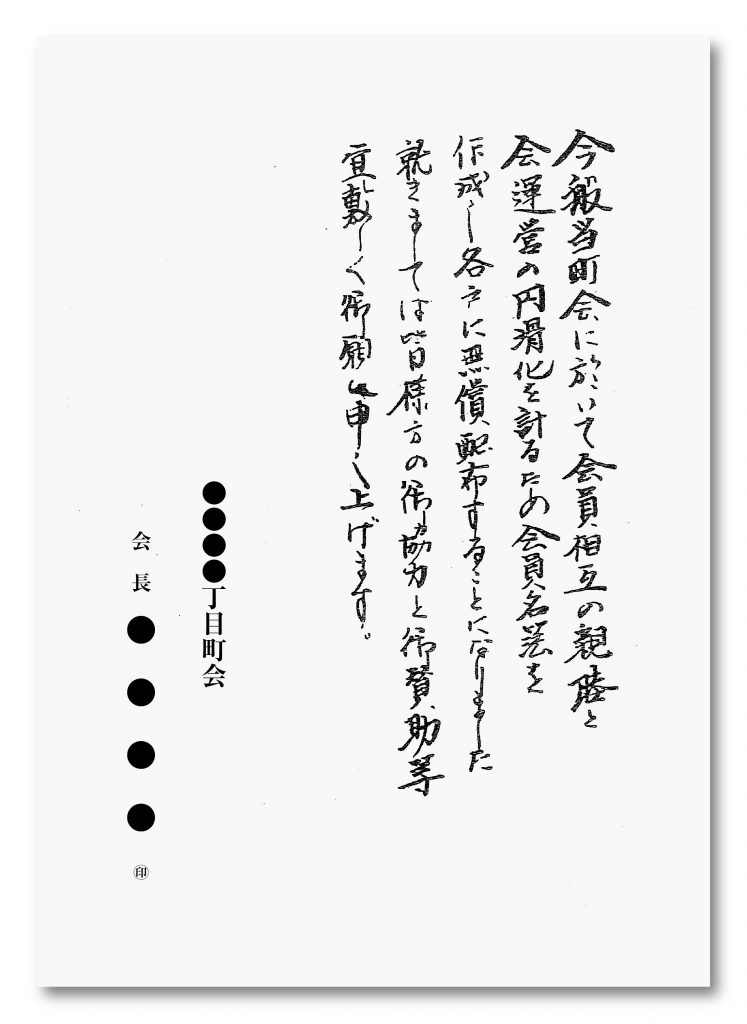 今般当町会に於いて会員相互の親睦と
会運営の円滑化を計るため会員名簿を
作成し各戸に無償配布することになりました
就きましては皆様方の御協力と御賛助等
宜敷しく御願い申し上げます。
●●●●丁目町会
会長●●●●㊞